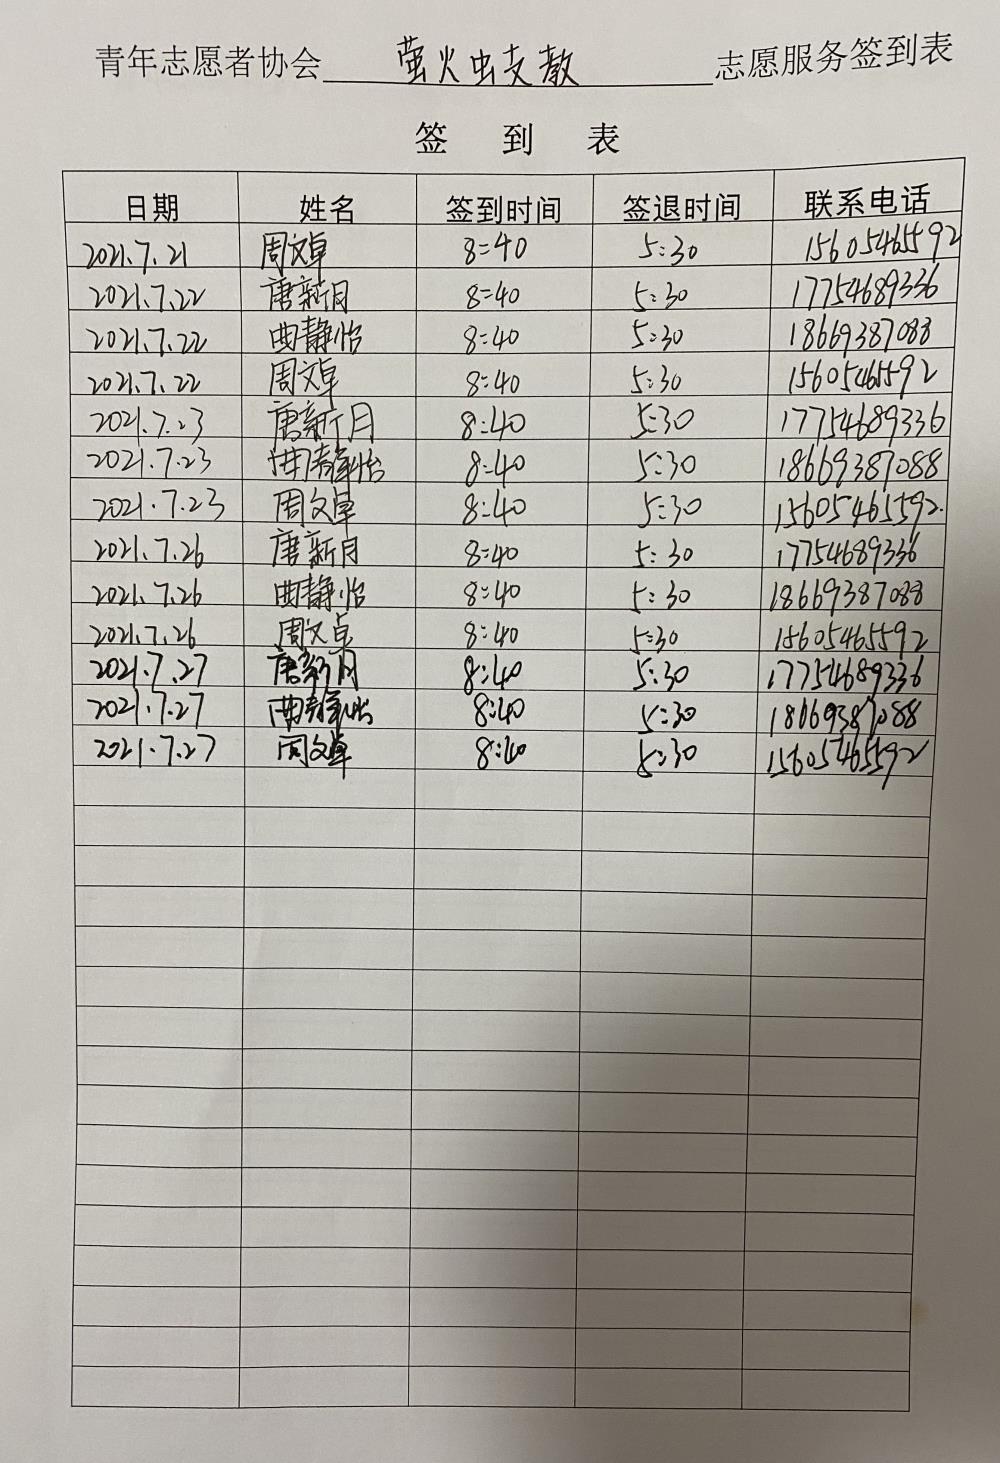 青年志愿者协会 萤火虫支教 志愿服务签到表
签 到 表
日期 姓名 签到时间 签退时间 联系电话
2021.7.21 周文卓 8:40 5:30 15605465592
2021.7.22 唐新月 8:40 5:30 17754689336
2021.7.22 曲静怡 8:40 5:30 18669387088
2021.7.22 周文卓 8:40 5:30 15605465592
2021.7.23 唐新月 8:40 5:30 17754689336
2021.7.23 曲静怡 8:40 5:30 18669387088
2021.7.23 周文卓 8:40 5:30 15605465592.
2021.7.26 唐新月 8:40 5:30 17754689336
2021.7.26 曲静怡 8:40 5:30 18669387088
2021.7.26 周文卓 8:40 5:30 15605465592
2021.7.27 唐新月 8:40 5:30 17754689336
2021.7.27 曲静怡 8:40 5:30 18669387088
2021.7.27 周文卓 8:40 5:30 15605465592